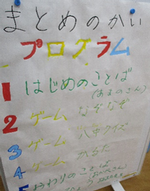 まとめのかい
プログラム
1 はじめのことば
2 ゲーム なぞなぞ
3 ゲーム 八才クイズ
4 ゲーム かるた
おわりのことば